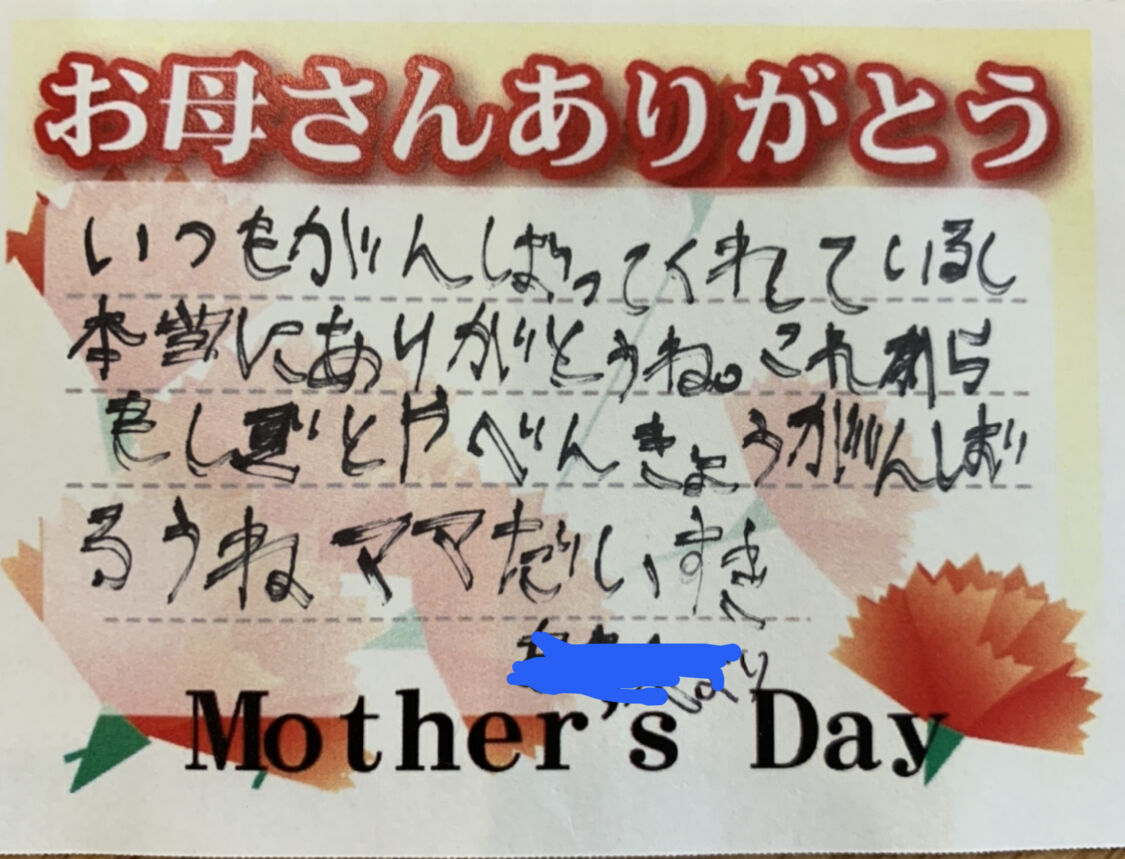 お母さんありがとう
いつもがんばってくれているし
本当にありがとうね。これから
もしごとやべんきょうがんば
るうねママだいすき
より
Mother's Day